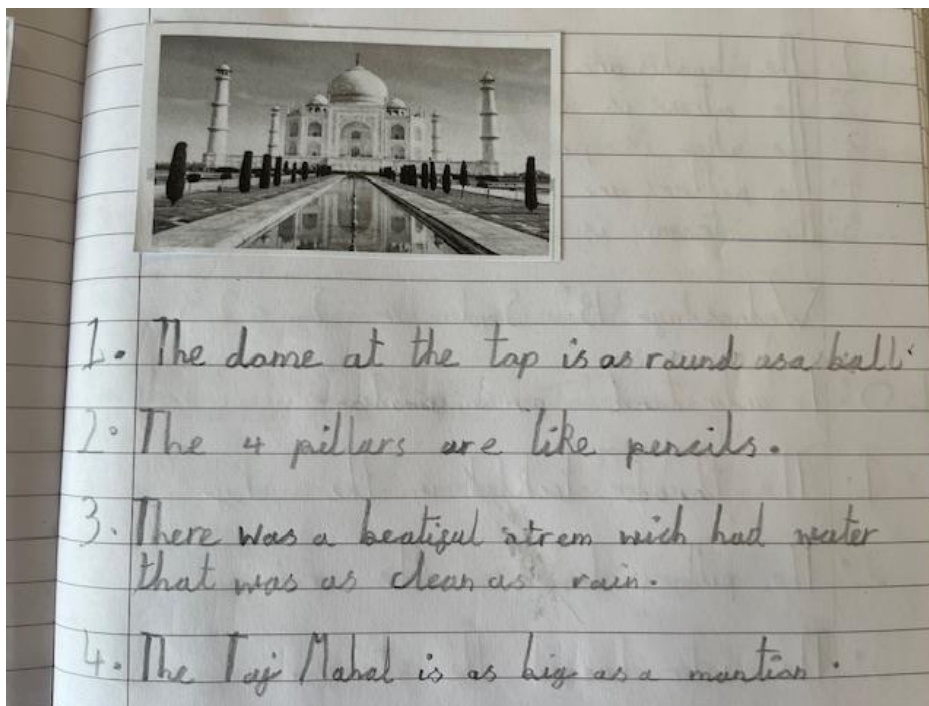 1. The dome at the top is as round as a ball.
2. The 4 pillars are like pencils.
3. There was a beatiful strem wich had water
that was as clean as rain.
4. The Taj Mahal is as big as a mantion.